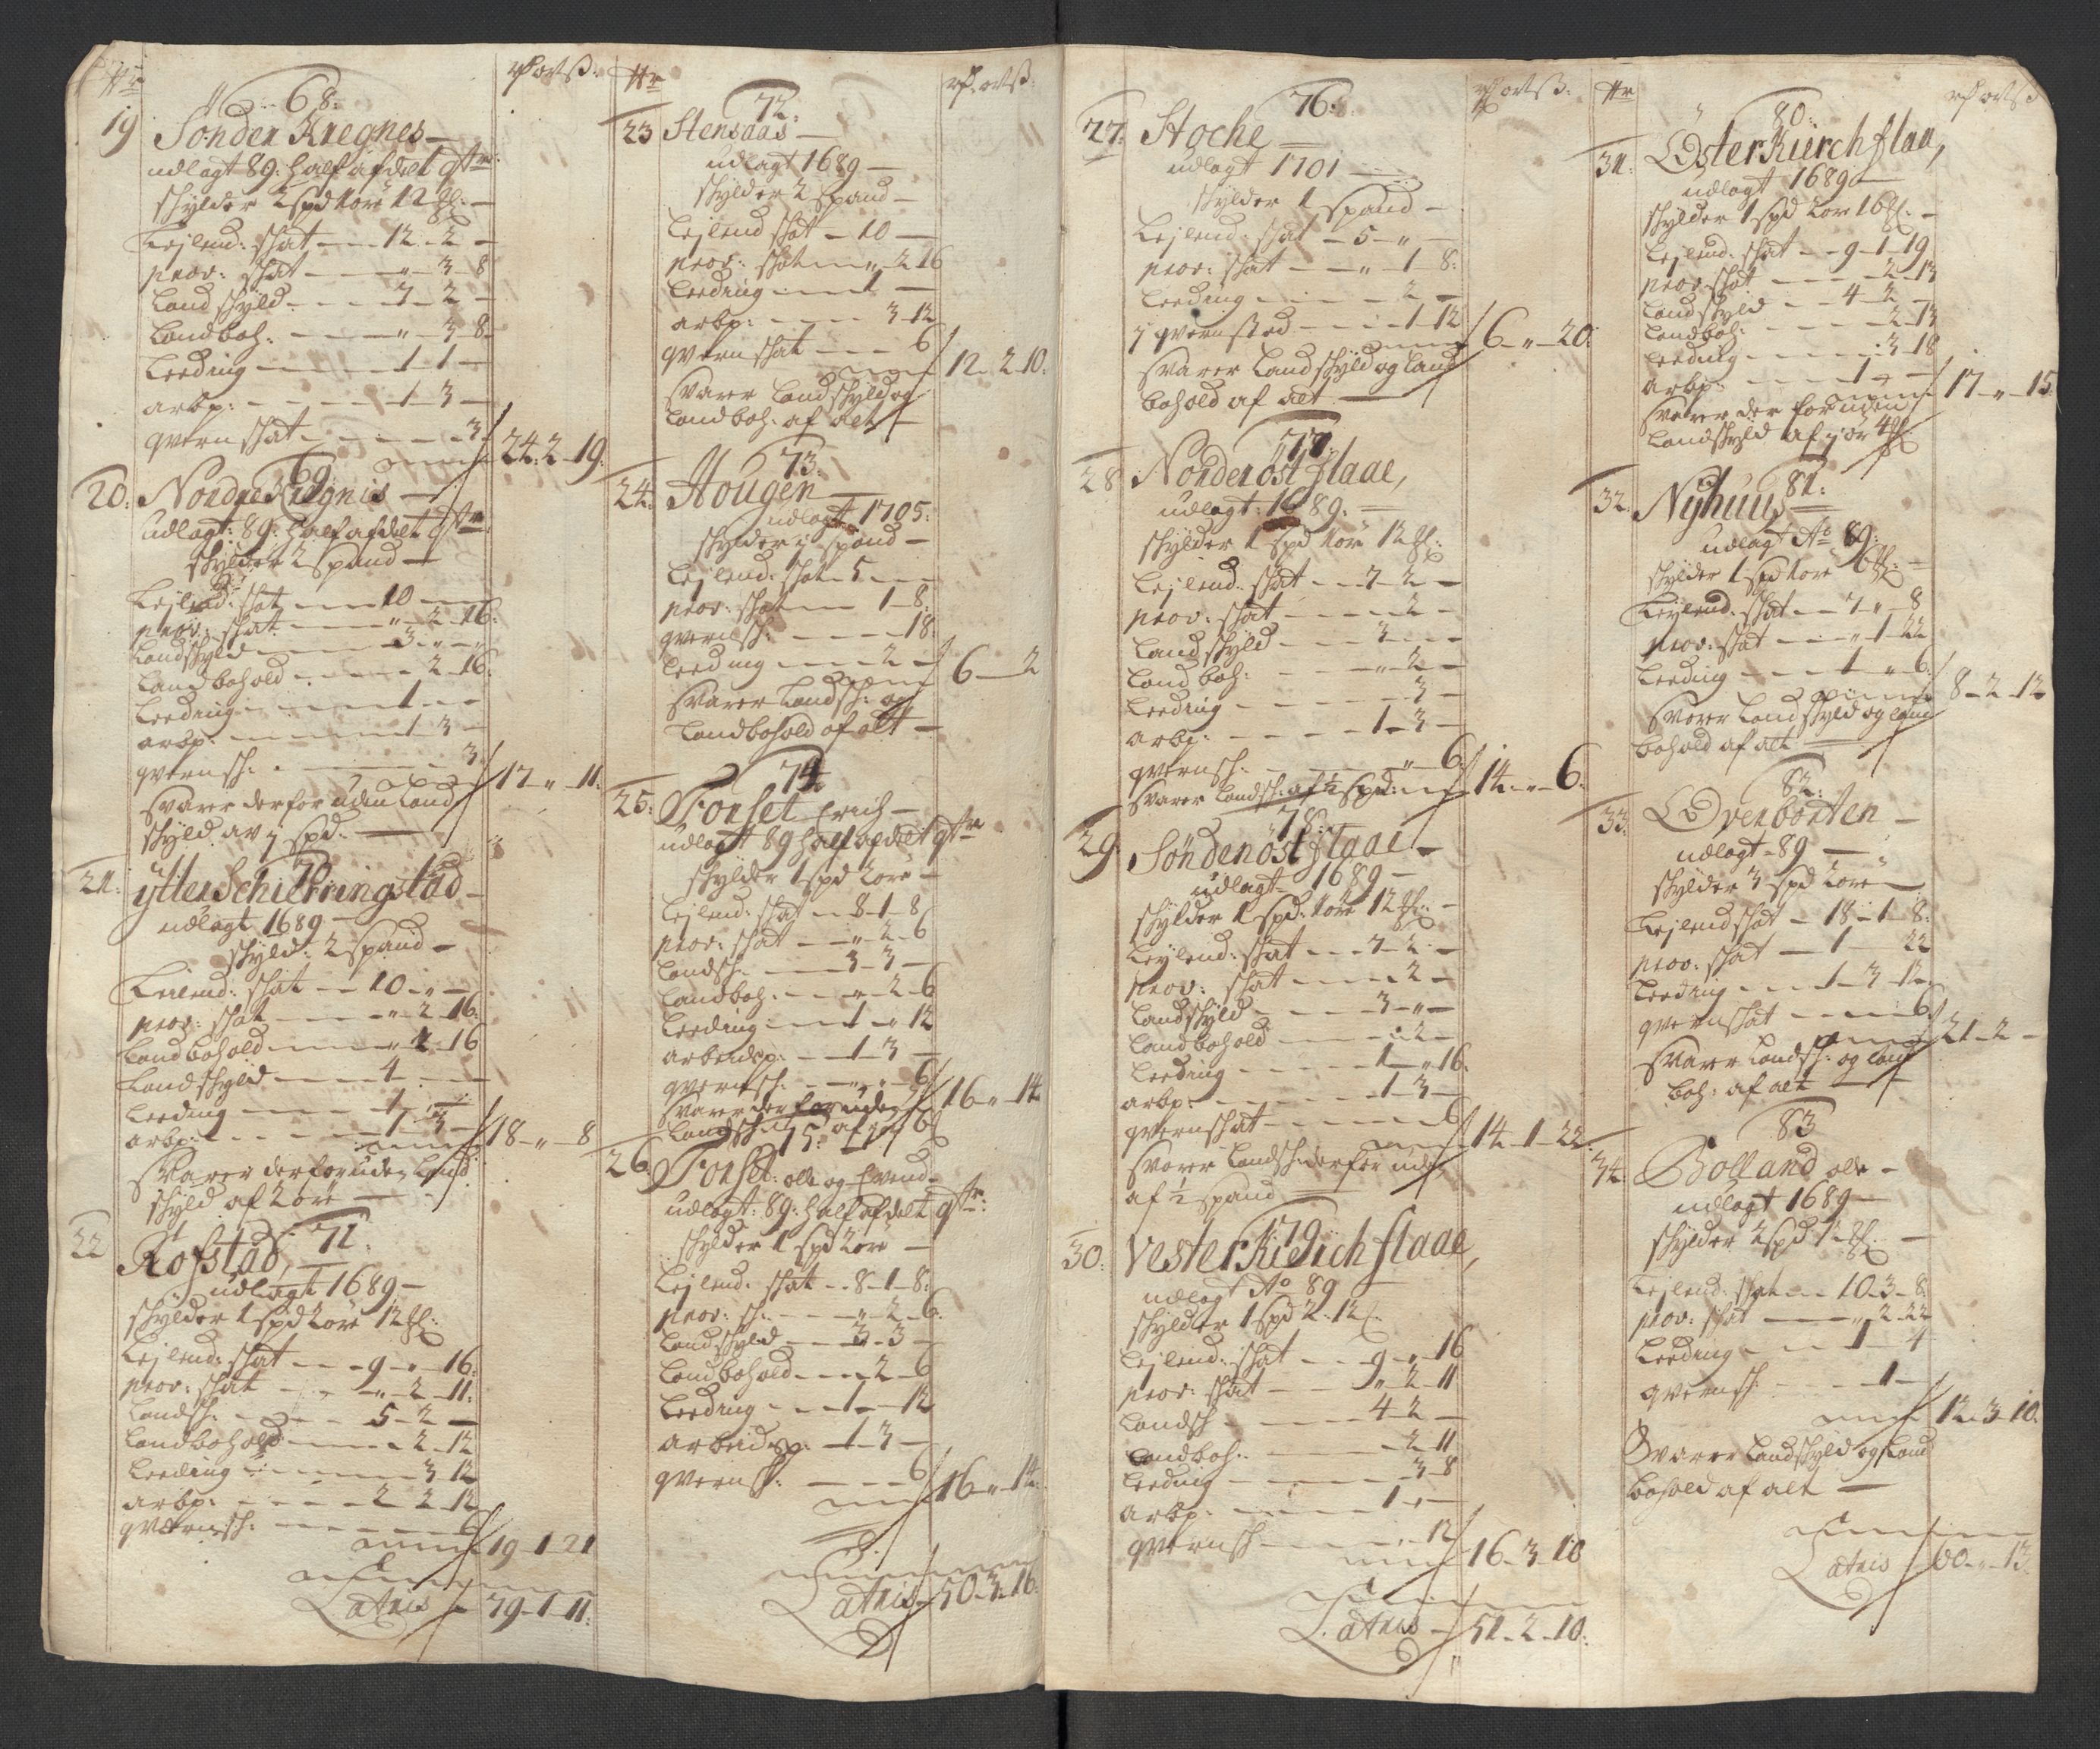 68:
19 Sönder Kregnes
udlagt 89: half afdelt gtr
skylder 2 spd 1 öre 12 ℔:
Lejlend: skat 12 - 2 -
prov: skat " - 3 - 8
Land skyld 7 - 2 -
Landboh: " - 3 - 8
Leeding 1 - 1 -
arbp: 1 - 3 -
qvern skat 3
24: 2 - 19:
69
20: Nordre Kregnis
udlagt: 89: half afdelt gtr
skylder 2 spand
Lejlend: skat 10
prov: skat " - 2 - 16:
Landskyld 3 - " - "
Land bohold 2 - 16:
Leeding 1 - -
arbp: 1 - 3 -
qvern sch: 3:
17 - " - 11:
Svarer der for uden Land
skyld av j spd:
70
21: ytter Schierringstad
udlagt 1689
skyld: 2 spand
Leilend: skat 10 - " -
prov: skat " - 2 - 16:
Land bohold " 2 - 16
Land skyld 4
Leeding 1
arbp: 1 - 3 -
18 - " - 8
Svarer der foruden Land
skyld af 2 öre
71
22 Rofstad,
udlagt 1689
skylder 1 spd 2 öre 12 ℔:
Lejlend: skat 9 - " - 16:
prov: skat " - 2 - 11:
Landsch: 5 - 2 -
Landbohold 2 - 12
Leeding 3 - 12
arbp: 2 - 2 - 12
qvernsch: 6
19 - 1 - 21
Latris 79 - 1 - 11:
72:
23 Stensaas
udlagt 1689
skylder 2 spand
Lejlend skat 10
prov: skat " 2 16
Leeding 1
arbp: 3 - 12
qvern skat 6
12 - 2 - 10:
Svarer Landskyld og
Landboh: af alt
73:
24: Hougen
udlagt 1705:
skylder j spand
Lejlend: skat 5
prov: skat 1 - 8
qvernsk: 18
Leeding 2
6 - 2
Svarer Landsch: og
Landbohold af alt
74
25: Forset Erich
udlagt 89 half afdelt gtr
skylder 1 spd 2 öre
Lejlend: skat 8 - 1 - 8
prov: skat " - 2 - 6
Landsch: 3 - 3 -
Landboh: " - 2 - 6
Leeding 1 - " 12
arbeidsp: 1 - 3 -
qvernsch: " - " - 6
16 - " - 14
Svarer der for uden
Landschyld af
75:
26 Forset: ole og Evend
udlagt: 89: half afdelt gtr:
skylder 1 spd 2 öre
Lejlend: skat 8 - 1 - 8:
prov: sch: " 2 - 6:
Landskyld 3 - 3 -
Landbohold 2 - 6
Leeding 1 - 12
arbeidsp: 1 - 3 -
qvernsk: 6
16 - " - 14:
Latris 50 - 3 - 16:
76:
27: Stoche
udlagt 1701
skylder 1 spand
Lejlend: skat 5 - "
prov: skat " - 1 - 8:
Leeding 2
j qvernsted 1 - 12
6 - " - 20:
Svarer Land skyld og Land
bohold af alt
77:
28 Norder öst flaae,
udlagt: 1689:
skylder 1 spd 1 öre 12 ℔:
Lejlend: skat 7 - 2 -
prov: skat 2 -
Land skyld 3
Land boh: " - 2 -
Leeding 3 -
arbp: 1 - 3 -
qvernsch: " - 6:
14 - " - 6:
Svarer Landsch: af ½ spd:
78:
29 Sönder öst flaae
udlagt 1689
skylder 1 spd: 1 öre 12 ℔:
Lejlend: skat 7 - 2 -
prov: skat 2 -
Landskyld 3 - " -
Landbohold 2 -
Leeding 1 - " 16:
arbp: 1 - 3 -
qvernskat 6
14 - 1 - 22
Svarer Landsch: der for uden
af ½ spand
79
30: Vester Kierich flaae,
udlagt Ao 89
skylder 1 spd 2 - 12 ℔:
Lejlend: skat 9 - " - 16
prov: skat " 2 - 11
Landsch 4 - 2 -
Landboh: 2 - 11
Leeding 3 - 8
arbp: 1 - " -
qvernsch 12
16 - 3 - 10
Latris 51 - 2 - 10:
80:
31: Öster Kierch flaa,
udlagt 1689
skylder 1 spd 2 öre 16 ℔:
Lejlend: skat 9 - 1 - 19
prov: skat 2 - 13
Landskyld 4 - 2 -
Landboh: 2 - 13
Leeding 3 - 18
arbp: 1
17 - " - 15
Svarer der foruden
Landskyld af j ör 4 ℔
81:
32: Nyhuus
udlagt Ao 89:
skylder 1 spd 1 öre 6 ℔:
Lejlend: skat 7 " - 8
prov: skat " 1 - 22
Leeding 1 " 6:
8 - 2 - 12
Svarer Land skyld og Land
bohold af alt
82:
33: Overborten
udlagt 89
skylder 3 spd 2 öre
Lejlend skat 18 - 1 - 8:
prov: skat 1 - 22
Leeding 1 - 3 - 12
qvernskat 6
21 - 2 -
Svarer Landsch: og Land
boh: af alt
83
34: Bolland ole
udlagt 1689
Lejlend: skat 10 - 3 - 8
prov: skat " - 2 - 22
Leeding 1 - 4
qvernsch 1
12 - 3 - 10:
Svarer Landskyld og Land
bohold af alt
Latris 60 - " - 13: